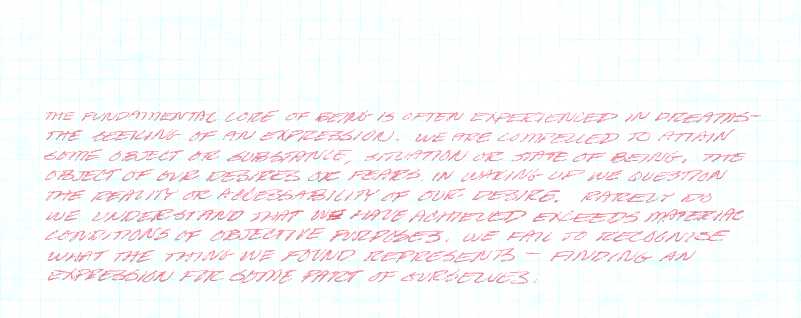 THE FUNDAMENTAL CORE OF BEING IS OFTEN EXPERIENCED IN DREAMS -
THE SEEKING OF AN EXPRESSION. WE ARE COMPELLED TO ATTAIN
SOME OBJECT OR SUBSTANCE, SITUATION OR STATE OF BEING. THE
OBJECT OF OUR DESIRES OR FEARS. IN WAKING UP WE QUESTION
THE REALITY OR ACCESSABILITY OF OUR DESIRE. RARELY DO
WE UNDERSTAND THAT WE HAVE ACHIEVED EXCEEDS MATERIAL
CONDITIONS OF OBJECTIVE PURPOSES. WE FAIL TO RECOGNISE
WHAT THE THING WE FOUND REPRESENTS - FINDING AN
EXPRESSION FOR SOME PART OF OURSELVES.